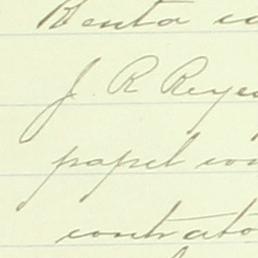 Benta co
J. R Reyes
papel con
contrato